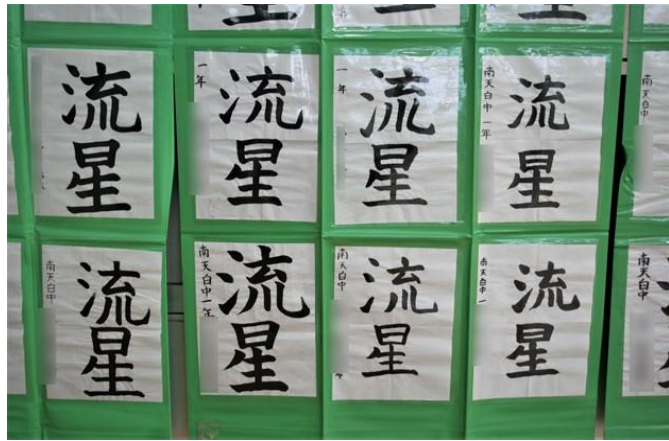 流星
一年
流星
一年
流星
南天白中一年
流星
南天白中
南天白中
流星
南天白中一年
流星
南天白中
流星
南天白中一
流星
南天白中